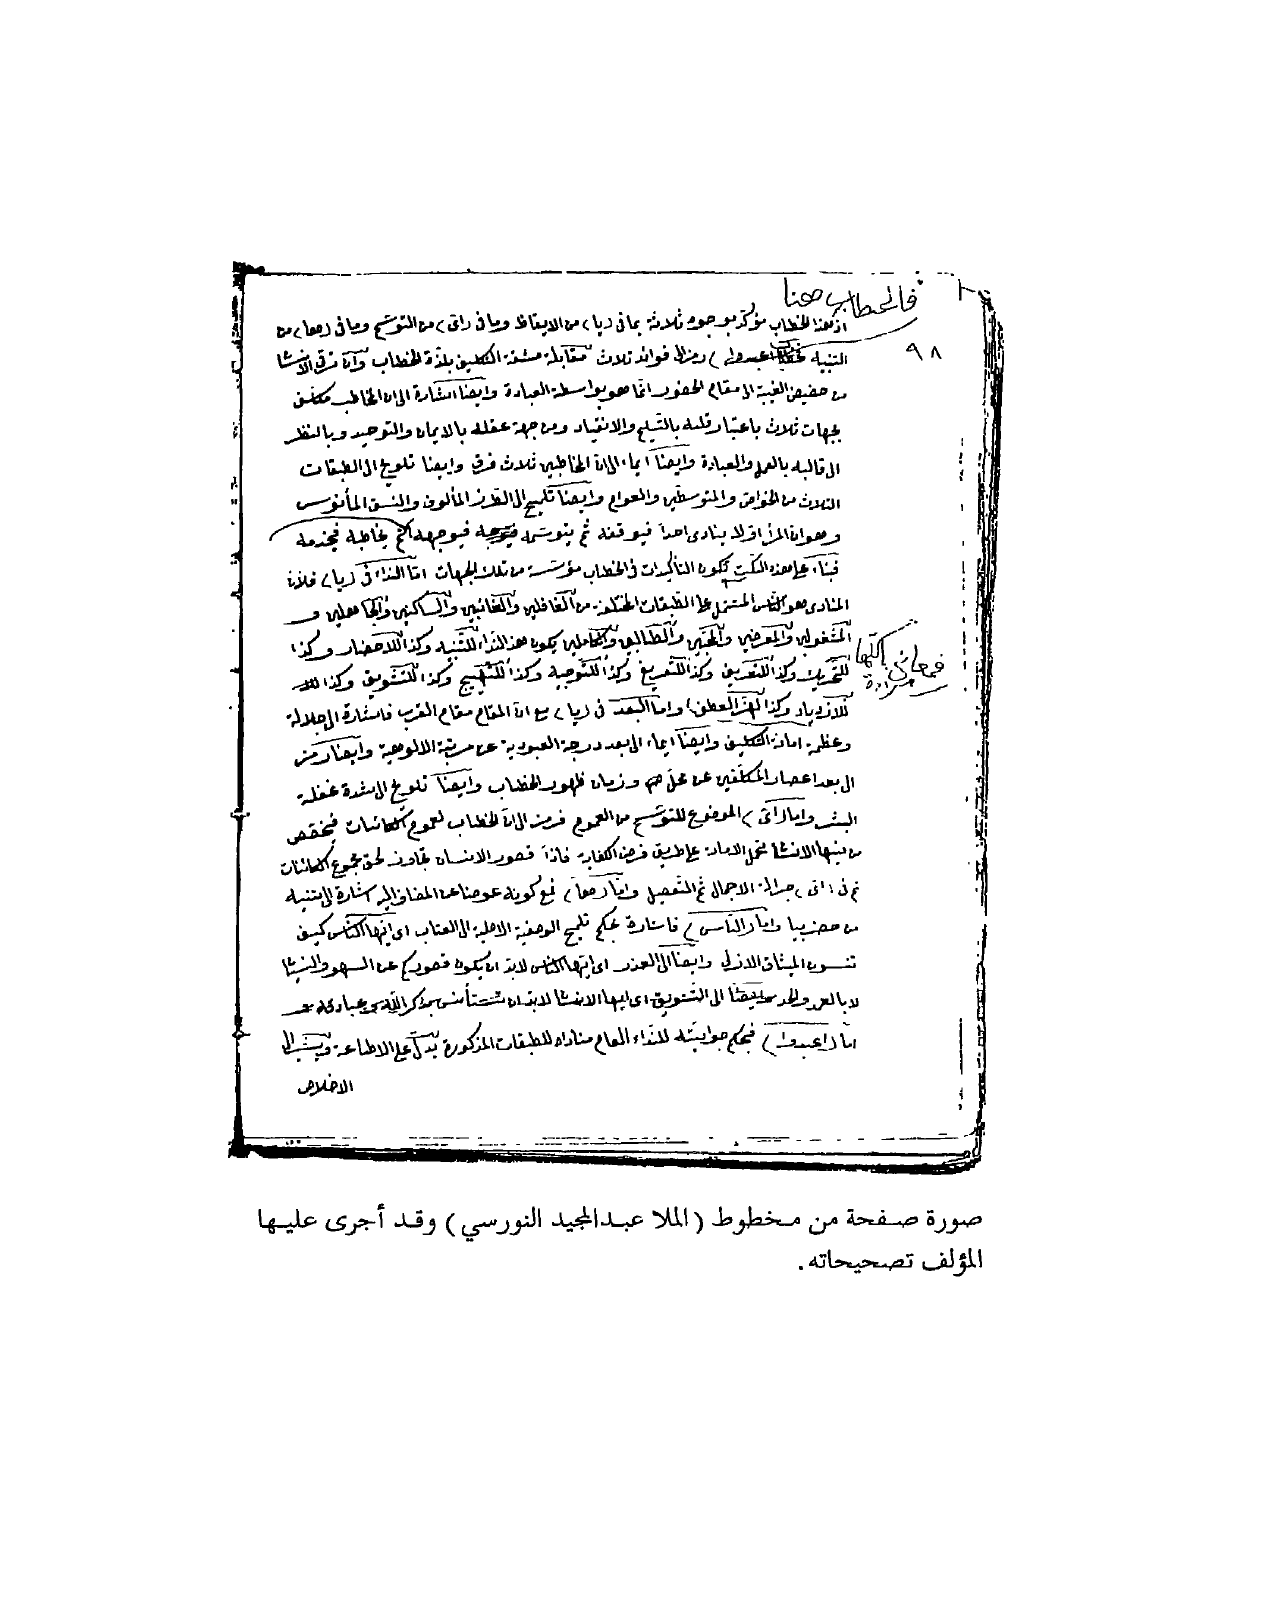 فالخطاب ههنا
٩٨
اذ هذا الخطاب مؤكد بوجوه ثلاثة بما في (يا) من الايقاظ وما في (اي) من التوسم وما في (ها) من
التنبيه (اعبدوا) رمز الى فوائد ثلاث مقابلة مشقة التكليف بلذة الخطاب وان ترقي الانسان
من حضيض الغيبة الى مقام الحضور انما هو بواسطة العبادة وايضا اشارة الى ان المخاطب مكلف
بجهات ثلاث باعتبار قلبه بالتسليم والانقياد ومن جهة عقله بالايمان والتوحيد وبالنظر
الى قالبه بالعمل والعبادة وايضا ايماء الى ان المخاطبين ثلاث فرق وايضا تلويح الى الطبقات
الثلاث من الخواص والمتوسطين والعوام وايضا تلميح الى الطرز المألوف والنسق المأنوس
وهو ان المرأ اولا ينادى احدا فيوقفه ثم يتوسمه فيوجهه ثم يخاطبه فيخدمه
فبناء على هذه النكت تكون التأكيدات في الخطاب مؤسسة من تلك الجهات اما النداء في (يا) فلان
المنادى هو الناس المشتمل على الطبقات المختلفة من الغافلين والغائبين والساكنين والجاهلين و
المشغولين والمعرضين والمحبين والطالبين والكاملين يكون هذا النداء للتنبيه وكذا للاحضار وكذا
للتحريك وكذا للتعريف وكذا للتفريغ وكذا للتوجيه وكذا للتهييج وكذا للتشويق وكذا
للازدياد وكذا لهز العطف واما البعد في (يا) مع ان المقام مقام القرب فاشارة الى جلالة
وعظمة امانة التكليف وايضا ايماء الى بعد درجة العبودية عن مرتبة الالوهية وايضا رمز
الى بعد اعصار المكلفين عن محل وزمان ظهور الخطاب وايضا تلويح الى شدة غفلة
البشر واما (اي) الموضوع للتوسم من العموم فرمز الى ان الخطاب لعموم الكائنات فيخصص
من بينها الانسان بتحمل الامانة على طريق فرض الكفاية فاذا قصور الانسان تجاوز لحق مجموع الكائنات
ثم في (اي) جزالة الاجمال ثم التفصيل واما (ها) فمع كونه عوضا عن المضاف اليه اشارة الى تنبيه
من حضر بيا واما (الناس) فاشارة بحكم تلميح الوصفية الاصلية الى العتاب اي ايها الناس كيف
تنسون الميثاق الازلي وايضا الى العذر اي ايها الناس لابد ان يكون قصوركم عن السهو والنسيان
لا بالعمد والجد وايضا الى التشويق اي ايها الانسان لابد ان تستأنس بذكر الله وعبادته
اما (اعبدوا) فبحكم جوابيته للنداء العام مناداه للطبقات المذكورة يدل على الاطاعة ويشير الى
الاخلاص
فمعاني
باكلها
مرادة
صورة صفحة من مخطوط (الملا عبدالمجيد النورسي) وقد أجرى عليها
المؤلف تصحيحاته.